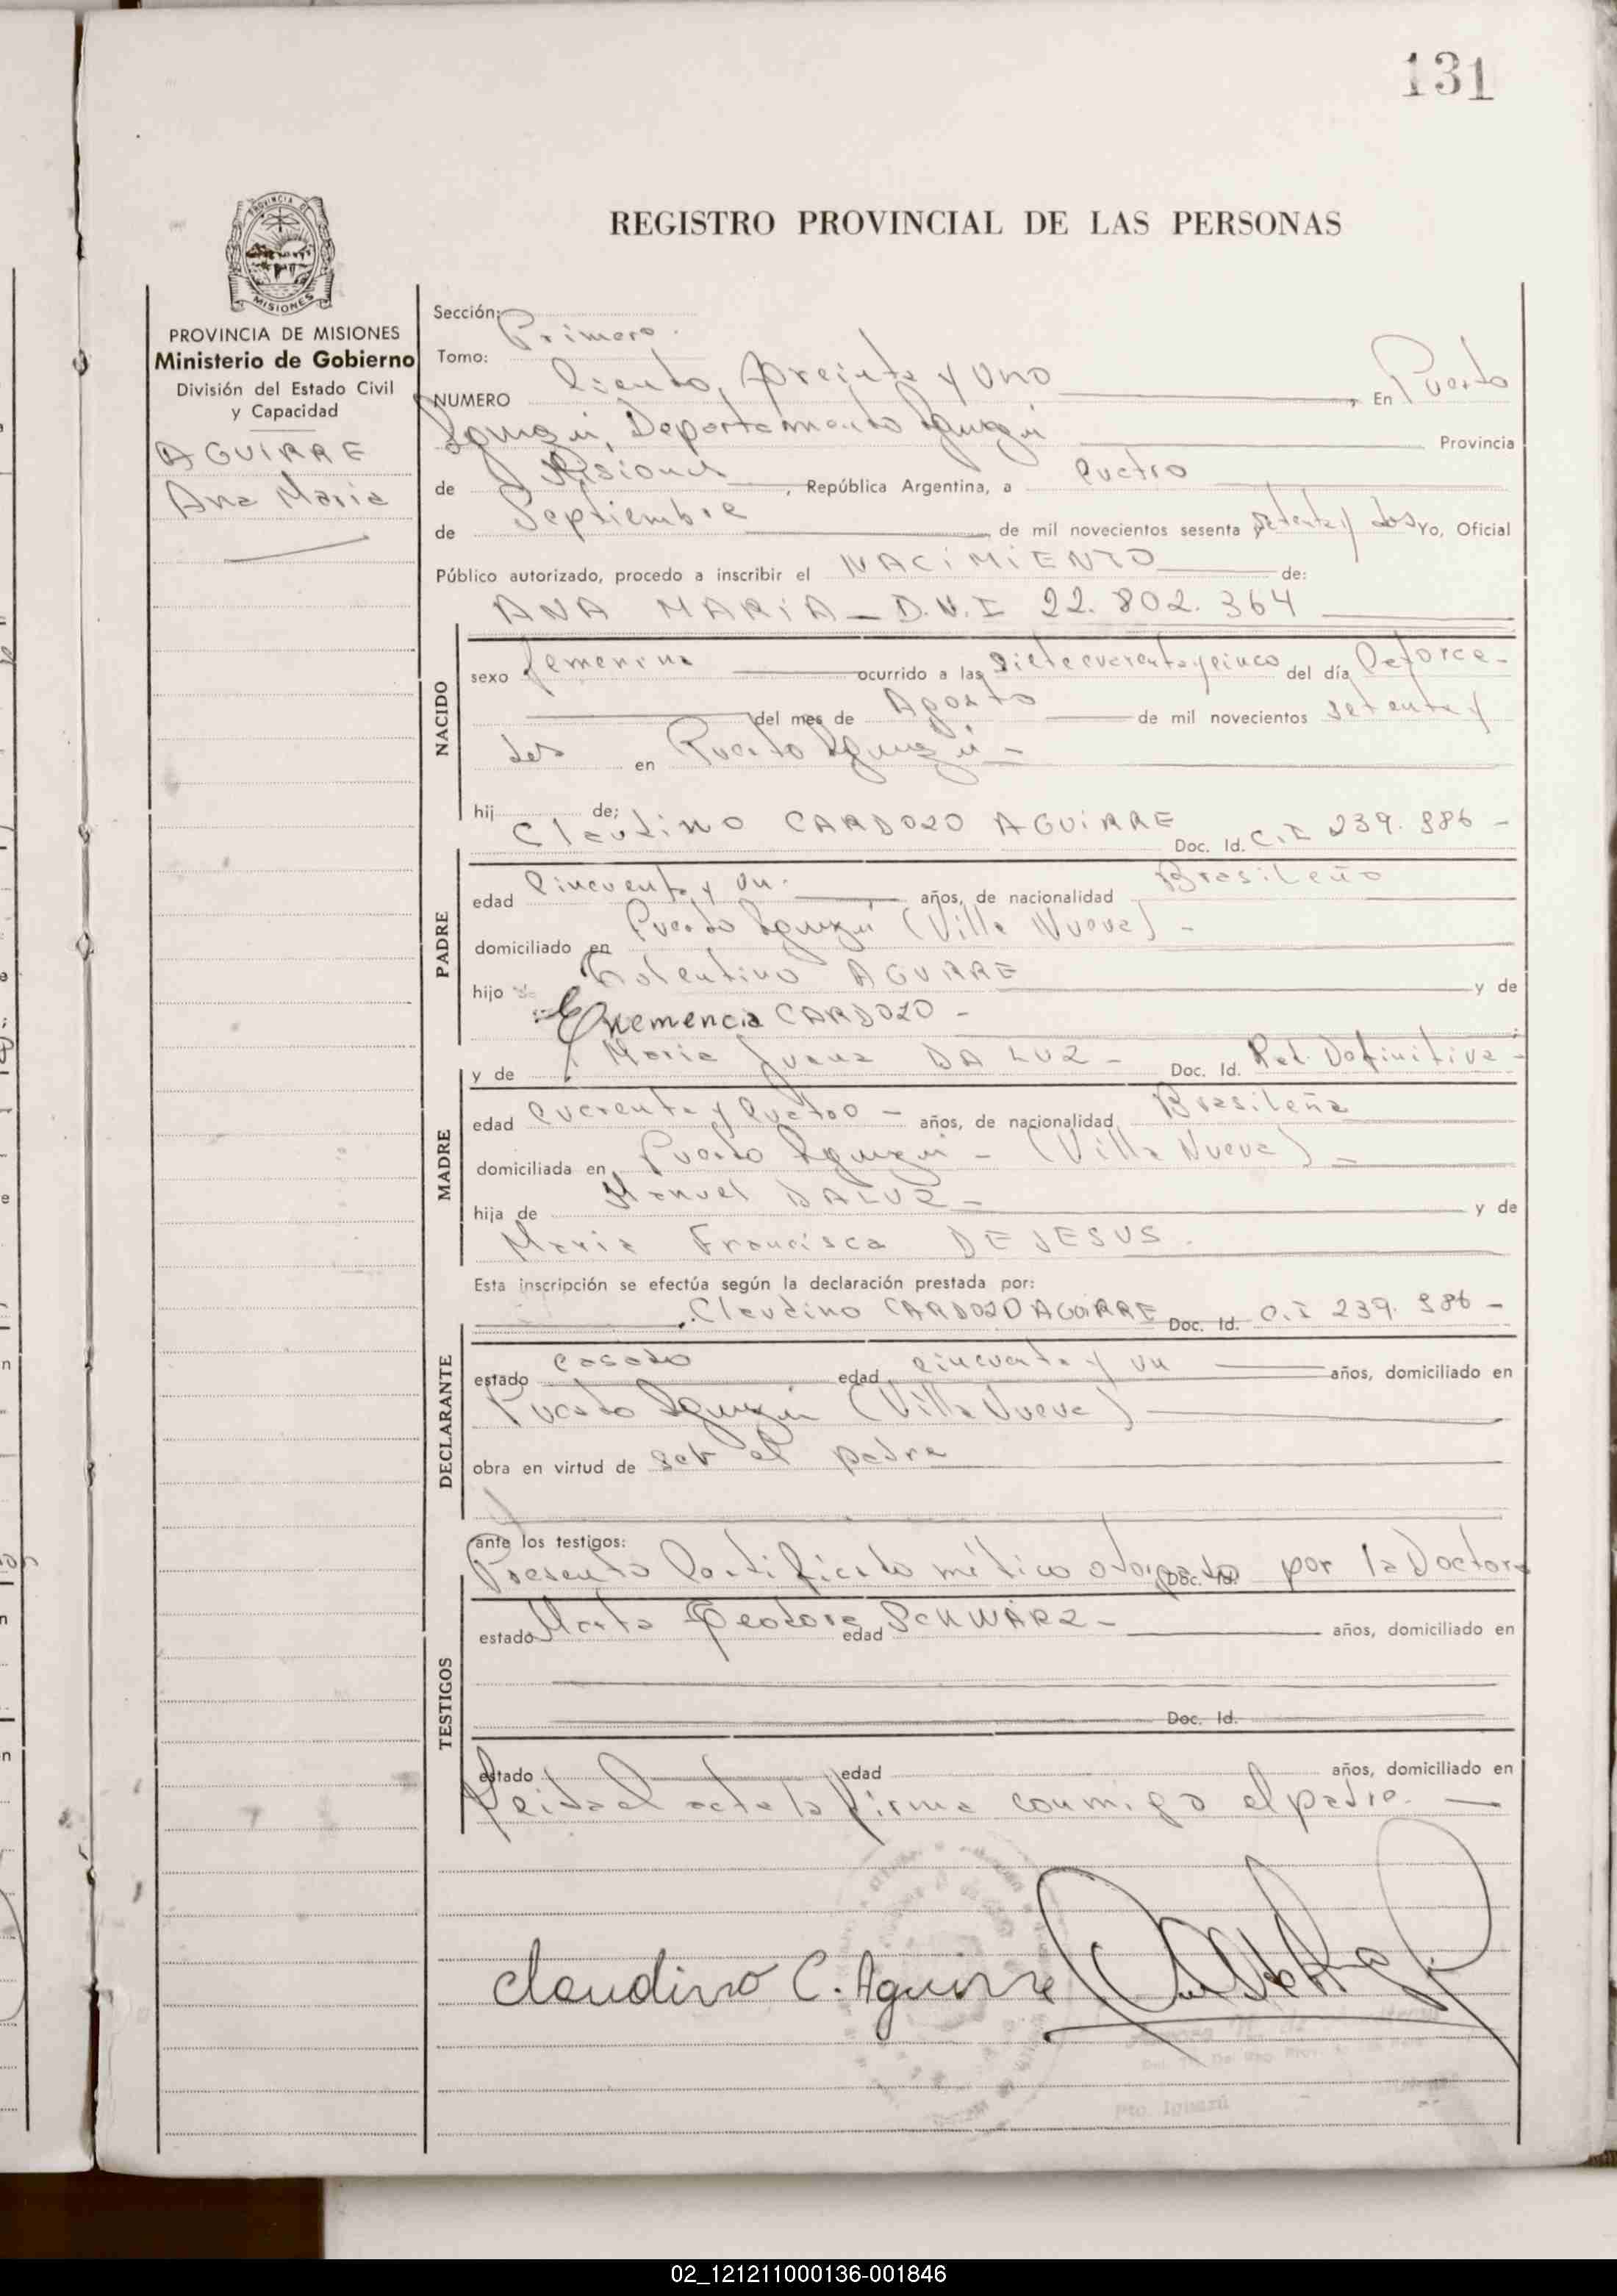 131
REGISTRO PROVINCIAL DE LAS PERSONAS
PROVINCIA DE MISIONES
PROVINCIA DE MISIONES
Ministerio de Gobierno
División del Estado Civil
y Capacidad
AGUIRRE
Ana Maria
Sección: Primera.
Tomo:
NUMERO Ciento, treinta y uno, En Puerto
Iguazú, Departamento Iguazú Provincia
de Misiones, República Argentina, a cuatro
de Septiembre de mil novecientos sesenta y setenta y dos Yo, Oficial
Público autorizado, procedo a inscribir el NACIMIENTO de:
ANA MARIA - D.N.I 22.802.364
NACIDO
sexo femenino ocurrido a las siete cuarenta y cinco del día Catorce -
del mes de Agosto de mil novecientos setenta y
dos en Puerto Iguazú -
hij de:
Claudino CARDOZO AGUIRRE Doc. Id. C.I 239.986 -
PADRE
edad Cincuenta y un. años, de nacionalidad Brasileño
domiciliado en Puerto Iguazú (Villa Nueva) -
hijo de AGUIRRE y de
CARDOZO -
y de Maria Juana DA LUZ - Doc. Id. Rad. Definitiva -
MADRE
edad cuarenta y cuatro - años, de nacionalidad Brasileña
domiciliada en Puerto Iguazú - (Villa Nueva) -
hija de Manuel DA LUZ - y de
Maria Francisca DE JESUS.
Esta inscripción se efectúa según la declaración prestada por:
Claudino CARDOZO AGUIRRE Doc. Id. C.I 239.986 -
DECLARANTE
estado casado edad cincuenta y un años, domiciliado en
Puerto Iguazú (Villa Nueva)
obra en virtud de ser el padre
ante los testigos:
Presento Certificado médico otorgado Doc. Id. por la Doctora
TESTIGOS
estado Marta Teodora edad SCHWARZ - años, domiciliado en
Doc. Id.
estado edad años, domiciliado en
Leida el acta la firma conmigo el padre.
Claudino C. Aguirre
Pto. Iguazú
02_121211000136-001846